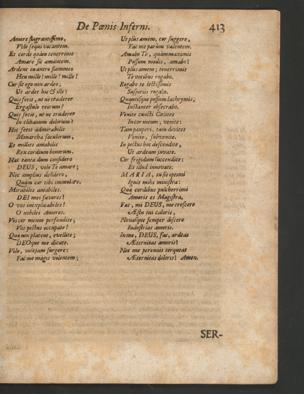 De Pœnis Inferni.
413
Amare flagrantissimo,
Vile sequi vacantem.
Et corde quàm tenerrimo
Amare sic amantem.
Ardens in antro flammeo
Heu mille! mille! mille!
Cur sit ego non ardeo;
Ut ardet hoc & ille!
Quis scit, ne tradever
Ergastulo reorum!
Quis scit, ne tradever
In thalamum dolorum?
Hoc feret admirabilis
Monarcha sæculorum,
Et milles amabilis
Rex cordium bonorum.
Hac tantùm dum considero
DEUS, volo Te amare;
Nec amplius desidero,
Quàm cor tibi immolare.
Mirabilis amabilis,
DEI mei favores!
O vos inexplicabiles!
O nobiles Amores.
Vis cor meum persundier,
Vis pectus occupare!
Quæ non placent, evellite;
DEOque me dicate.
Vile, vos jam surgere:
Fac me magis volentem;
Ut plus amem, cor suggere,
Fac me parùm valentem.
Amabo Te, quàmmaximis
Possum modis, amabo!
Ut plus amem; tenerrimis
Te vocibus rogabo.
Rogabo te bellissimis
Suspiriis rogabo.
Quantisque possum lachrymis;
Instanter obsecrabo.
Venite cuncti Cælites
Inter meum; venite:
Tam pauper, tam divites
Venite, subvenite.
In pectus hoc descendite,
Ut ardeam juvate.
Cor frigidum succendite:
Et illud renovate.
MARIA,
Ignis mihi ministra:
Quæ cordibus pulcherrimi
Amoris es Magistra,
Fac, mi DEUS, me crescere
Æstu tui caloris,
Novaque semper discere
Industrias amoris.
In me, DEUS, fac, ardeas
Æternitas amoris!
Nec me perennis torqueat
Æternitas doloris! Amen.
SER-